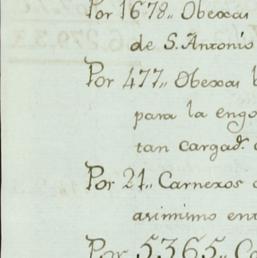 Por 1678,, Obexas
de S. Antonio
Por 477,, Obexas
para la engo
tan cargad.
Por 21,, Carneros
asimismo en
Por 5365,, Ca